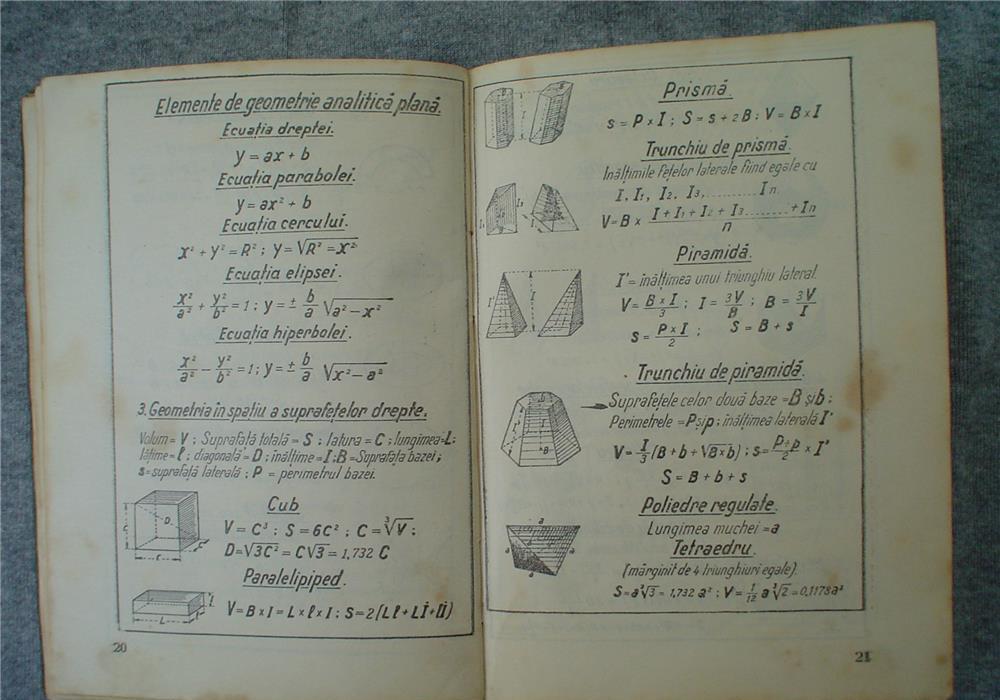 Elemente de geometrie analitică plană.
Ecuația dreptei.
y = ax + b
Ecuația parabolei.
y = ax² + b
Ecuația cercului.
x² + y² = R² ; y = √R² = x²
Ecuația elipsei.
x²/a² + y²/b² = 1 ; y = ± b/a √a² - x²
Ecuația hiperbolei.
x²/a² - y²/b² = 1 ; y = ± b/a √x² - a²
3. Geometria în spațiu a suprafețelor drepte.
Volum = V ; Suprafață totală = S ; latura = C ; lungimea = L ;
lățime = ℓ ; diagonală = D ; înălțime = I ; B = Suprafața bazei ;
s = suprafață laterală ; P = perimetrul bazei.
Cub
V = C³ ; S = 6C² ; C = ∛V ;
D = √3C² = C√3 = 1,732 C
Paralelipiped.
V = B x I = L x ℓ x I ; S = 2(Lℓ + LI + ℓI)
20
Prismă.
s = P x I ; S = s + 2B ; V = B x I
Trunchiu de prismă.
Inălțimile fețelor laterale fiind egale cu
I, I₁, I₂, I₃,.........In
V = B x I + I₁ + I₂ + I₃........+ In / n
Piramidă.
I' = înălțimea unui triunghiu lateral.
V = B x I / 3 ; I = 3V / B ; B = 3V / I
s = P x I / 2 ; S = B + s
Trunchiu de piramidă.
Suprafețele celor două baze = B și b ;
Perimetrele = P și p ; înălțimea laterală I'
V = I/3 (B + b + √B x b) ; s = P + p / 2 x I'
S = B + b + s
Poliedre regulate.
Lungimea muchei = a
Tetraedru.
(mărginit de 4 triunghiuri egale).
S = a²√3 = 1,732 a² ; V = 1/12 a³√2 = 0,1178a³
21